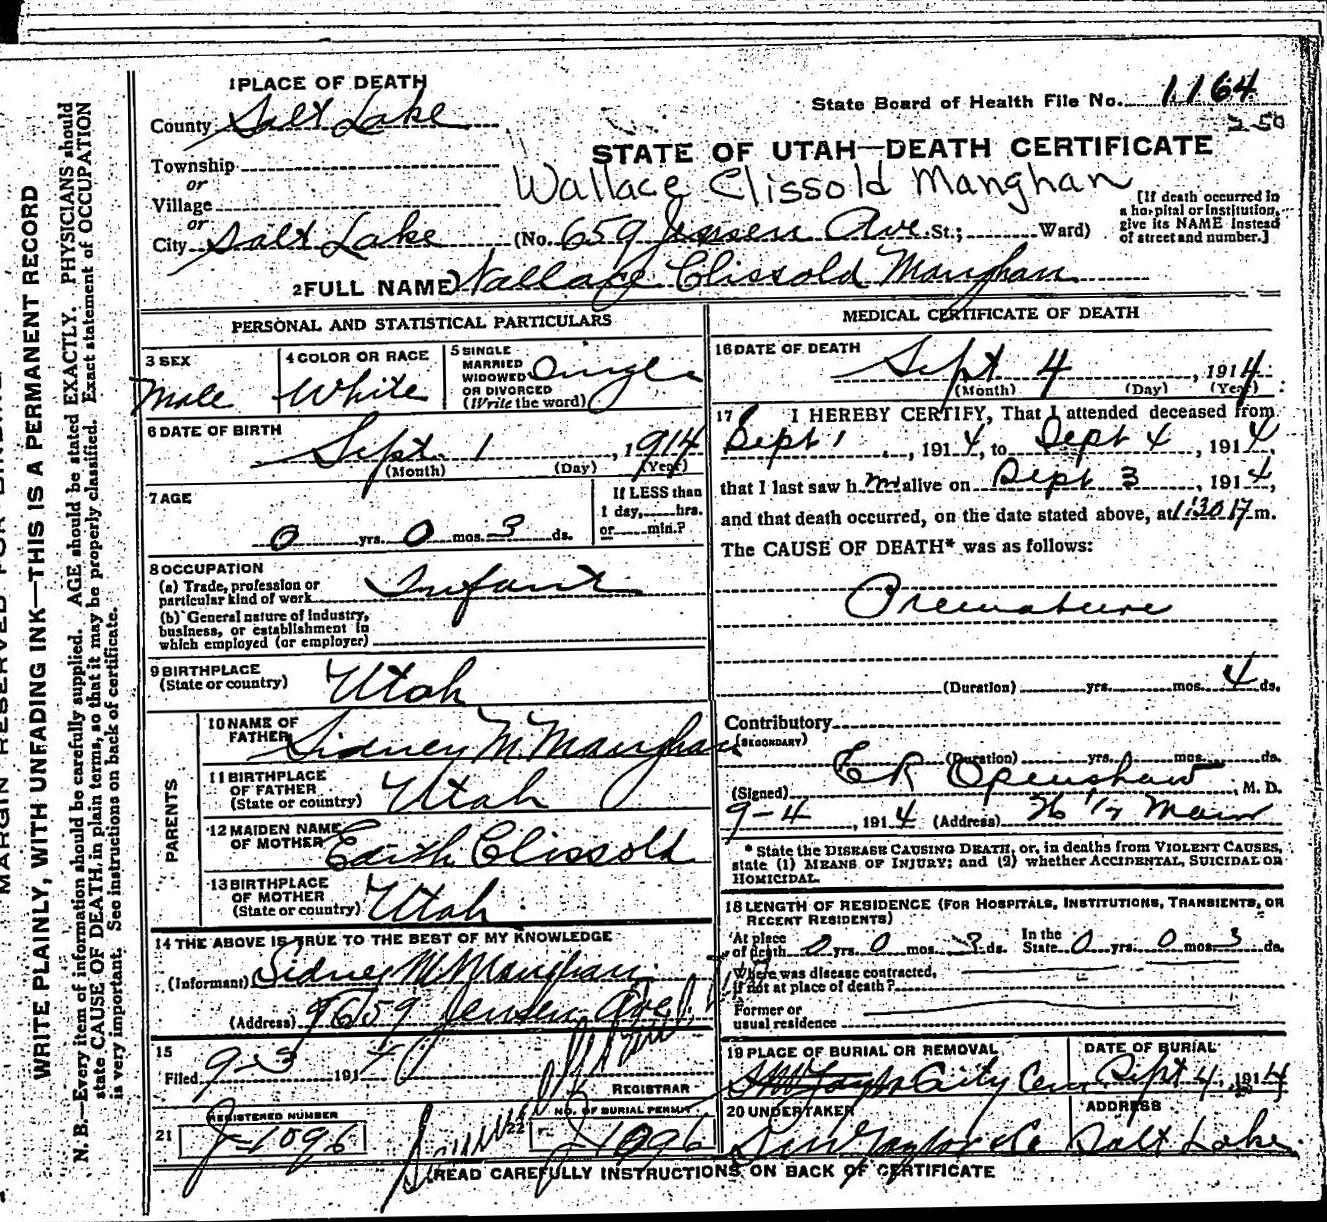 1 PLACE OF DEATH
County Salt Lake
State Board of Health File No. 1164
250
STATE OF UTAH—DEATH CERTIFICATE
Township
or
Wallace Clissold Manghan
Village
or
City Salt Lake (No. 659 Jensen Ave St.; Ward)
[If death occurred in
a hospital or institution,
give its NAME instead
of street and number.]
2 FULL NAME Wallace Clissold Maughan
PERSONAL AND STATISTICAL PARTICULARS
3 SEX
Male
4 COLOR OR RACE
White
5 SINGLE
MARRIED
WIDOWED
OR DIVORCED
(Write the word)
Single
6 DATE OF BIRTH
Sept. 1, 1914
(Month) (Day) (Year)
7 AGE
0 yrs. 0 mos. 3 ds.
If LESS than
1 day, hrs.
or min.?
8 OCCUPATION
(a) Trade, profession or
particular kind of work Infant
(b) General nature of industry,
business, or establishment in
which employed (or employer)
9 BIRTHPLACE
(State or country) Utah
PARENTS
10 NAME OF
FATHER Sidney M. Maughan
11 BIRTHPLACE
OF FATHER
(State or country) Utah
12 MAIDEN NAME
OF MOTHER Edith Clissold
13 BIRTHPLACE
OF MOTHER
(State or country) Utah
14 THE ABOVE IS TRUE TO THE BEST OF MY KNOWLEDGE
(Informant) Sidney M Maughan
(Address) 659 Jensen Ave
15
Filed 9-3 1914
REGISTRAR
REGISTERED NUMBER
21 J-1096
NO. OF BURIAL PERMIT
22 J-1096
MEDICAL CERTIFICATE OF DEATH
16 DATE OF DEATH
Sept 4, 1914
(Month) (Day) (Year)
17 I HEREBY CERTIFY, That I attended deceased from
Sept 1, 1914, to Sept 4, 1914,
that I last saw h im alive on Sept 3, 1914,
and that death occurred, on the date stated above, at m.
The CAUSE OF DEATH* was as follows:
Premature
(Duration) yrs. mos. 4 ds.
Contributory
(SECONDARY)
(Duration) yrs. mos. ds.
(Signed) E R Openshaw, M. D.
9-4, 1914 (Address) Main
* State the DISEASE CAUSING DEATH, or, in deaths from VIOLENT CAUSES,
state (1) MEANS OF INJURY; and (2) whether ACCIDENTAL, SUICIDAL OR
HOMICIDAL.
18 LENGTH OF RESIDENCE (FOR HOSPITALS, INSTITUTIONS, TRANSIENTS, OR
RECENT RESIDENTS)
At place
of death 0 yrs. 0 mos. 3 ds. In the
State 0 yrs. 0 mos. 3 ds.
Where was disease contracted,
if not at place of death?
Former or
usual residence
19 PLACE OF BURIAL OR REMOVAL
City Cem
DATE OF BURIAL
Sept 4, 1914
20 UNDERTAKER
S M Taylor & Co
ADDRESS
Salt Lake
READ CAREFULLY INSTRUCTIONS ON BACK OF CERTIFICATE
WRITE PLAINLY, WITH UNFADING INK—THIS IS A PERMANENT RECORD
N. B.—Every item of information should be carefully supplied. AGE should be stated EXACTLY. PHYSICIANS should
state CAUSE OF DEATH in plain terms, so that it may be properly classified. Exact statement of OCCUPATION
is very important. See instructions on back of certificate.